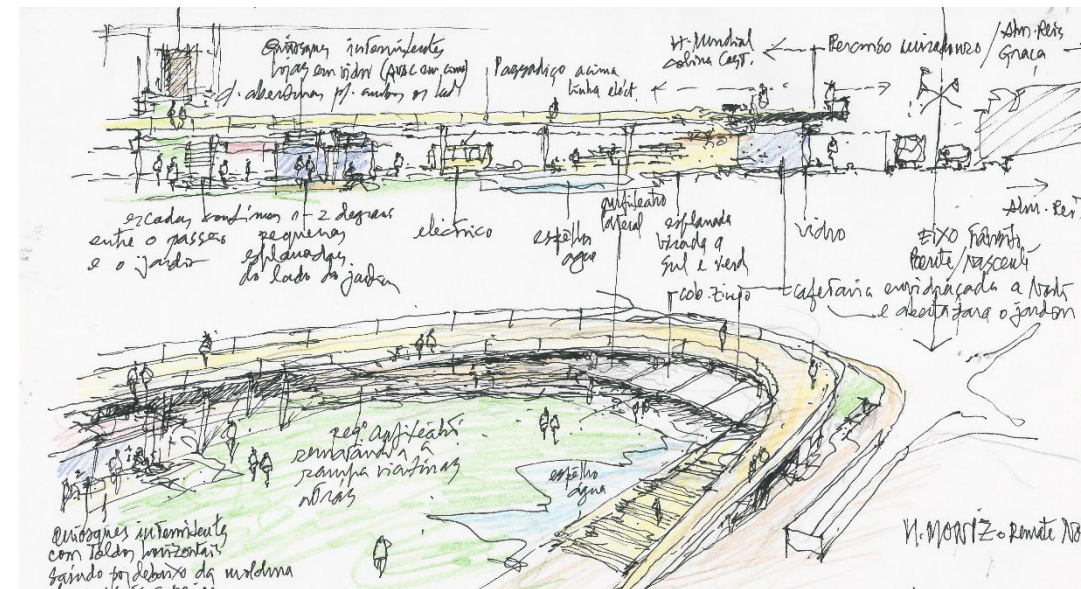 Quiosques intermitentes
lojas em vidro
c/ aberturas p/ ambos os lad
Passadiço acima
linha eléct.
H. Mundial
colina Cast.
Percurso miradouro / Alm. Reis
Graça
escadas contínuas 1-2 degraus
entre o passeio
e o jardim
pequenas
esplanadas
do lado do jardim
eléctrico
espelho
água
anfiteatro
lateral
esplanada
virada a
Sul e verde
vidro
Alm. Rei
EIXO
Poente/Nascente
cob. Zinco
cafetaria envidraçada a Norte
e aberta para o jardim
peq. Anfiteatro
rematando a
rampa
atrás
espelho
água
Quiosques intermitentes
com Toldos horizontais
saindo por debaixo da moldura
M. MONIZ - Remate No